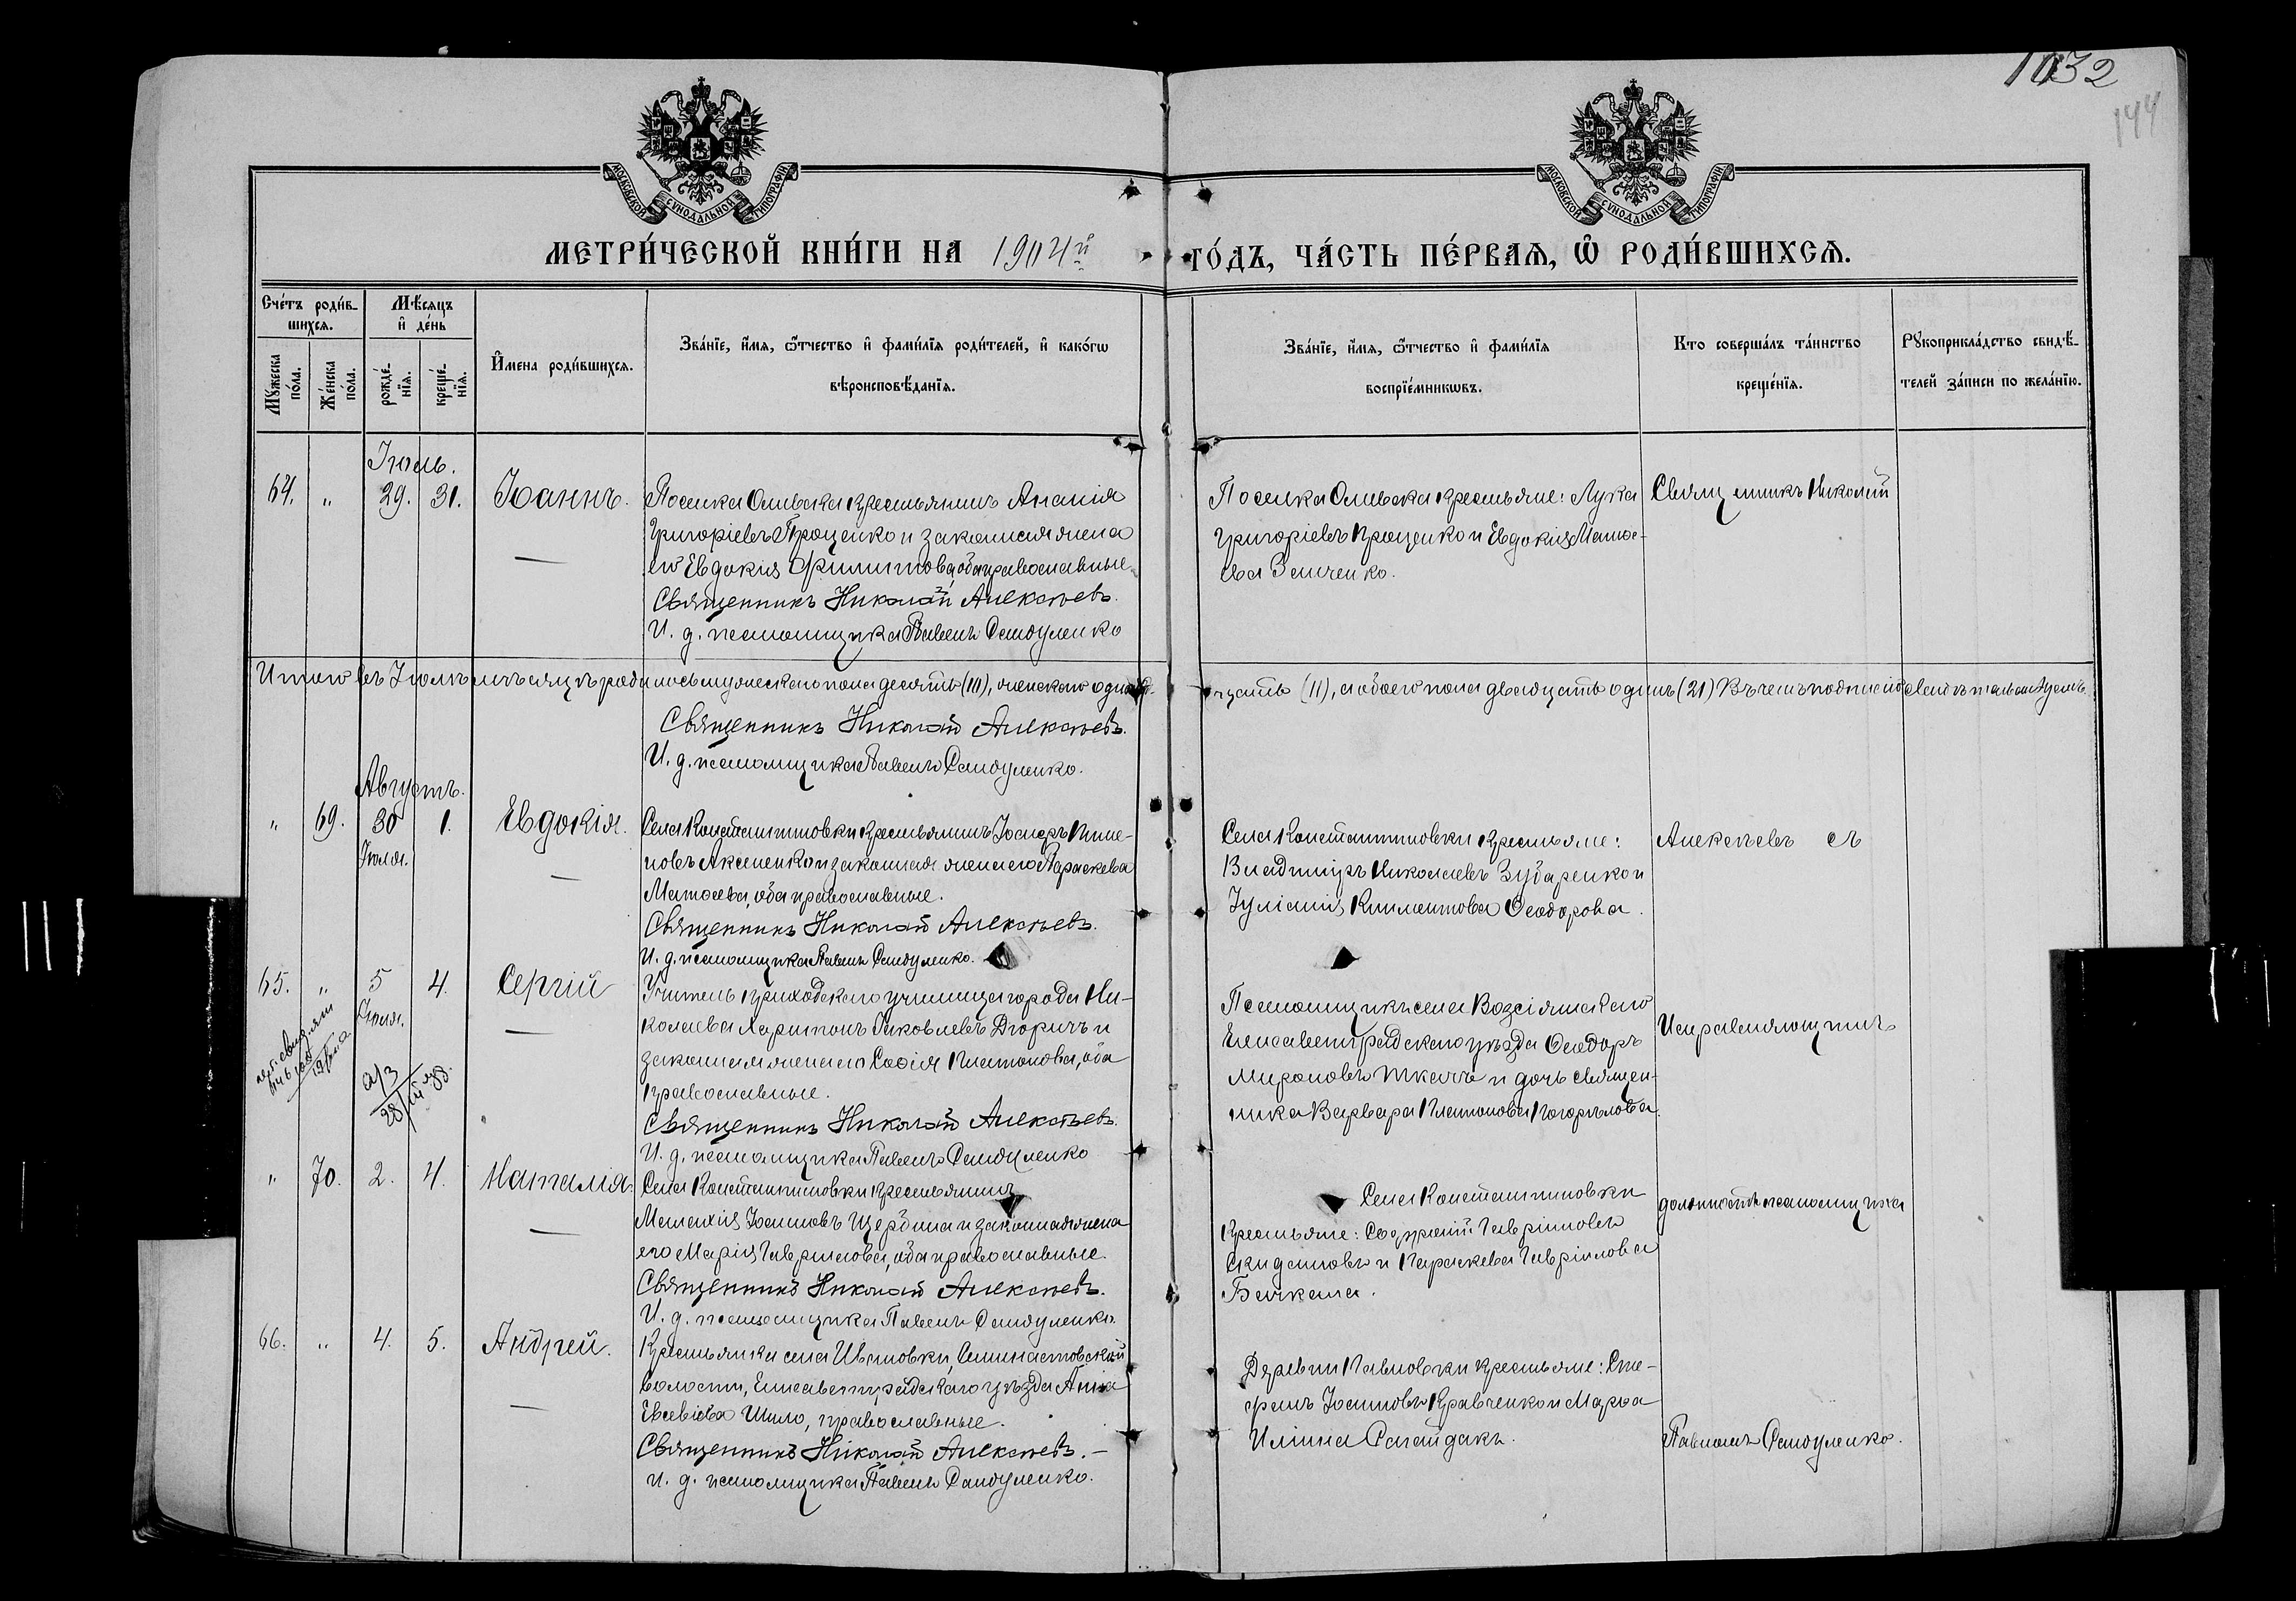 1032
144
МОСКОВСКОЙ СУНОДАЛЬНОЙ ТИПОГРАФІИ
МОСКОВСКОЙ СУНОДАЛЬНОЙ ТИПОГРАФІИ
МЕТРИ́ЧЕСКОЙ КНИ́ГИ НА 1904й
ГО́ДЪ, ЧА́СТЬ ПЕ́РВАЯ, Ѡ РОДИ́ВШИХСЯ.
Сче́тъ роди́в-
шихся.
Мѣ́сяцъ
и де́нь
Мꙋ́жеска по́ла.
Же́нска по́ла.
рожде́нїя.
креще́нїя.
И҆мена роди́вшихся.
Зва́нїе, и҆́мя, ѻ҆́тчество и҆ фами́лїя роди́телей, и҆ како́гѡ
вѣроисповѣ́данїя.
Зва́нїе, и҆́мя, ѻ҆́тчество и҆ фами́лїя
воспрїе́мникѡвъ.
Кто соверша́лъ та́инство
креще́нїя.
Рꙋкоприкла́дство свидѣ́-
телей за́писи по жела́нїю.
Іюль.
64. „ 29. 31. Іоаннъ.
Поселка Ольвска крестьянинъ Ананія
Григоріевъ Проценко и законная жена
его Евдокія Филиппова, оба православные.
Священникъ Николай Алексѣевъ.
И. д. псаломщика Павелъ Сандуленко
Поселка Ольвска крестьяне: Лука
Григоріевъ Проценко и Евдокія Матѳе-
ева Зинченко.
Священникъ Николай
Итого въ Іюлѣ мѣсяцѣ родилось мужескаго пола десять (10), женскаго одинад-
цать (11), а обоего пола двадцать одинъ (21) Въ чемъ подписью
Священникъ Николай Алексѣевъ.
И. д. псаломщика Павелъ Сандуленко.
Августъ.
„ 69. 30 1. Евдокія.
Іюля.
Села Константиновки крестьянинъ Іосифъ
Аксененко и законная жена его Параскева
Матѳеева, оба православные.
Священникъ Николай Алексѣевъ.
И. д. псаломщика Павелъ Сандуленко.
Села Константиновки крестьяне:
Владиміръ Николаевъ Зубаренко и
Іуліанія Климентова Ѳеодорова.
Алексѣевъ съ
65. „ 5 4. Сергій
Іюля.
Учитель приходскаго училища города Ни-
колаева Харитонъ Яковлевъ Дворичъ и
законная жена его Софія Платонова, оба
православные.
Священникъ Николай Алексѣевъ.
И. д. псаломщика Павелъ Сандуленко
Псаломщикъ села Возсіятскаго
Елисаветградскаго уѣзда Ѳеодоръ
Мироновъ Ткачъ и дочь священ-
ника Варвара Платонова Погорѣлова.
Исправляющимъ
„ 70. 2. 4. Наталія.
Села Константиновки крестьянинъ
Мелентій Іоанновъ Щербина и законная жена
его Марія Гавріилова, оба православные.
Священникъ Николай Алексѣевъ.
И. д. псаломщика Павелъ Сандуленко.
Села Константиновки
крестьяне: Софроній Гавріиловъ
Скидановъ и Параскева Гавріилова
должность псаломщика
66. „ 4. 5. Андрей.
Крестьянки села Ивановки,
волости, Елисаветградскаго уѣзда Анна
Евсевіева Шило, православные.
Священникъ Николай Алексѣевъ.–
И. д. псаломщика Павелъ Сандуленко.
Деревни Павловки крестьяне: Сте-
фанъ Іоанновъ Кравченко и Марѳа
Иліина Сагайдакъ.
Павломъ Сандуленко.